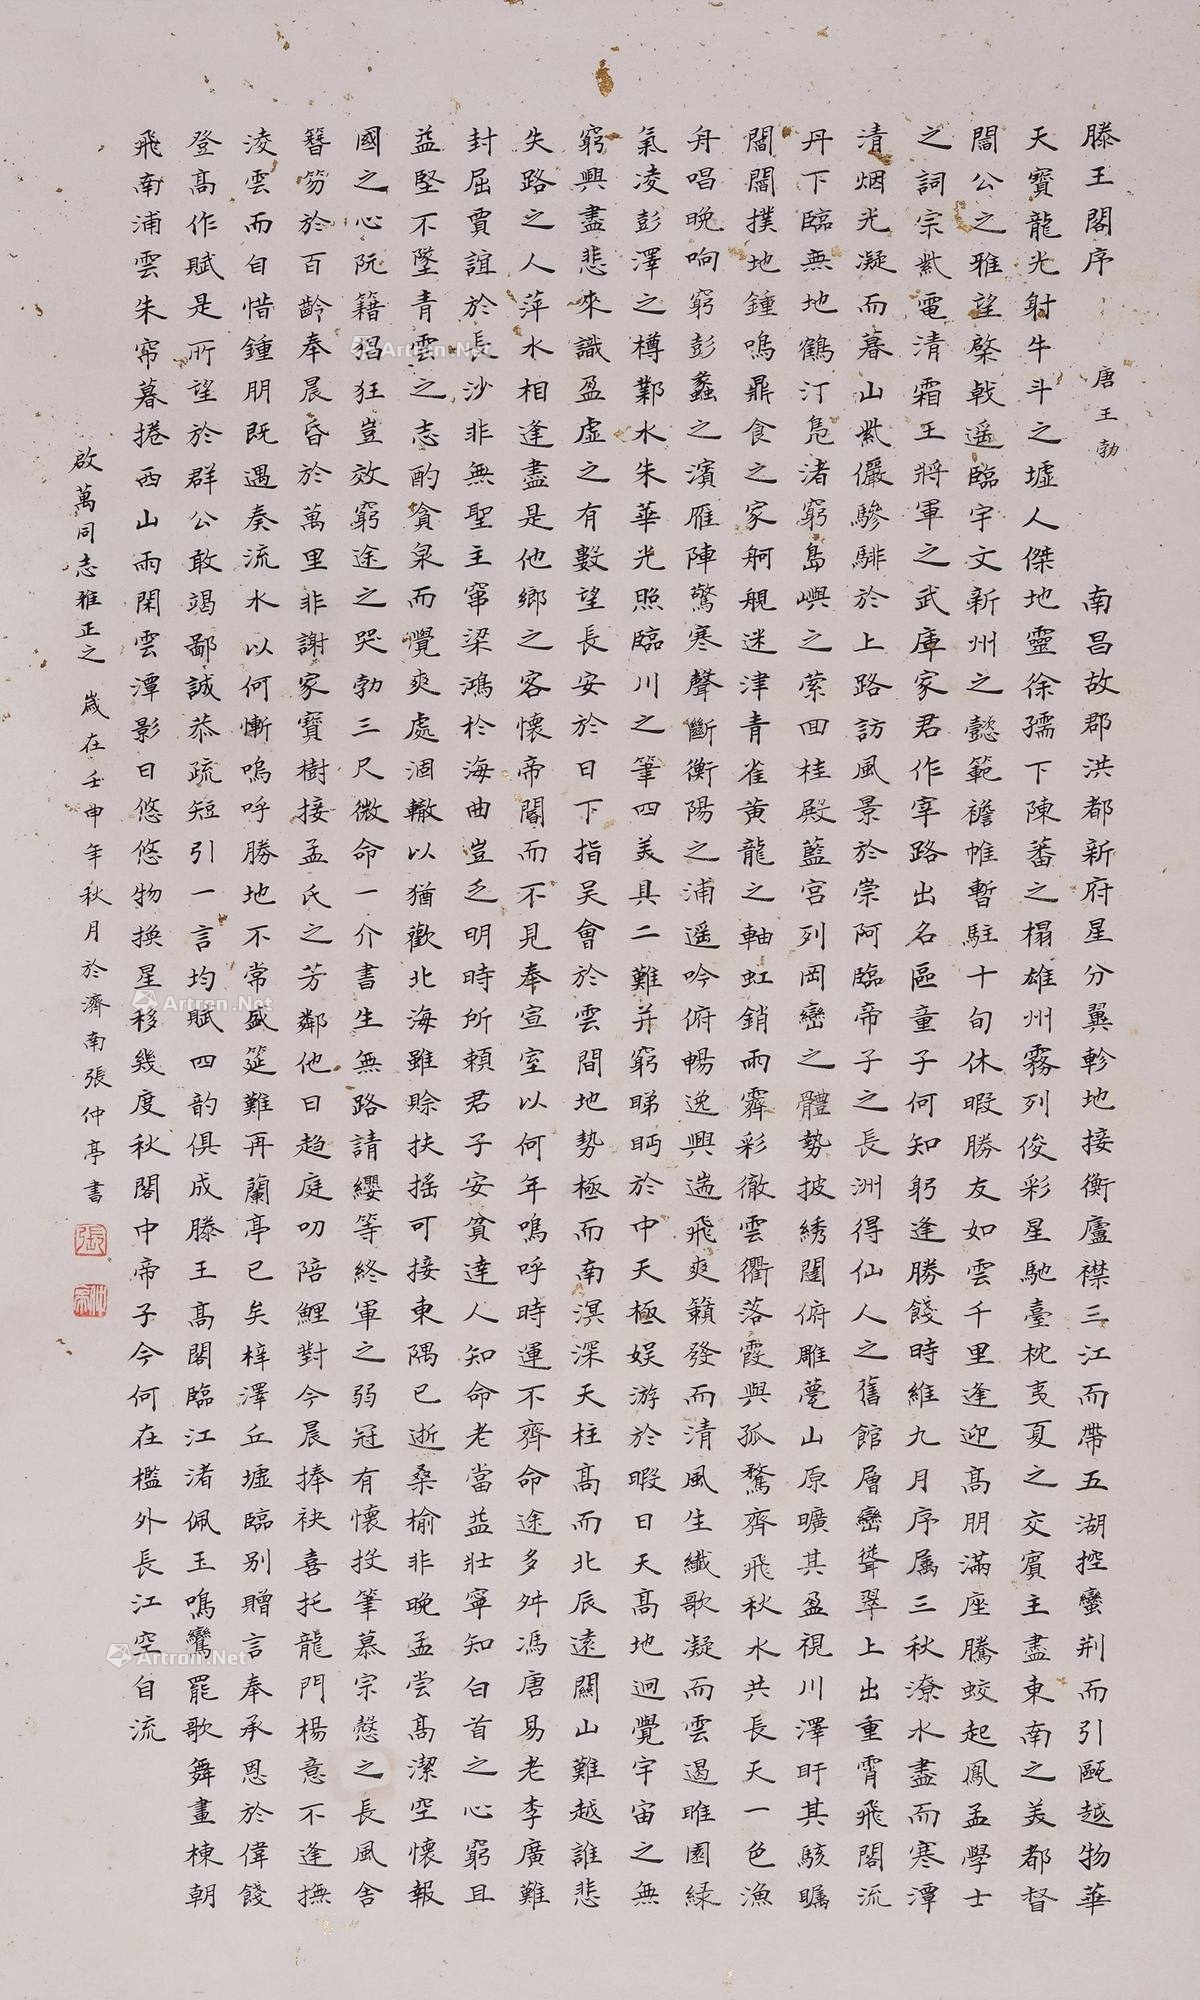 滕王閣序 唐王勃 南昌故郡洪都新府星分翼軫地接衡廬襟三江而帶五湖控蠻荆而引甌越物華
天寶龍光射牛斗之墟人傑地靈徐孺下陳蕃之榻雄州霧列俊彩星馳臺枕夷夏之交賓主盡東南之美都督
閻公之雅望棨戟遥臨宇文新州之懿範襜帷暫駐十旬休暇勝友如雲千里逢迎高朋滿座騰蛟起鳳孟學士
之詞宗紫電清霜王將軍之武庫家君作宰路出名區童子何知躬逢勝餞時維九月序属三秋潦水盡而寒潭
清烟光凝而暮山紫儼驂騑於上路訪風景於崇阿臨帝子之長洲得仙人之舊館層巒聳翠上出重霄飛閣流
丹下臨無地鶴汀凫渚窮島嶼之萦回桂殿藍宫列岡巒之體勢披綉闥俯雕甍山原曠其盈視川澤盱其駭矚
閭閻撲地鍾鳴鼎食之家舸艦迷津青雀黄龍之軸虹銷雨霽彩徹雲衢落霞與孤鶩齊飛秋水共長天一色漁
舟唱晚响窮彭蠡之濱雁陣驚寒聲斷衡陽之浦遥吟俯暢逸興遄飛爽籟發而清風生纖歌凝而雲遏睢園緑
氣凌彭澤之樽鄴水朱華光照臨川之筆四美具二難并窮睇眄於中天極娱游於暇日天高地迥覺宇宙之無
窮興盡悲來識盈虚之有數望長安於日下指吴會於雲間地勢極而南溟深天柱高而北辰遠關山難越誰悲
失路之人萍水相逢盡是他鄉之客懷帝閽而不見奉宣室以何年嗚呼時運不齊命途多舛馮唐易老李廣難
封屈賈誼於長沙非無聖主窜梁鴻於海曲豈乏明時所賴君子安貧達人知命老當益壯寧知白首之心窮且
益堅不墜青雲之志酌貪泉而覺爽處涸轍以猶歡北海雖賒扶摇可接東隅已逝桑榆非晚孟尝高潔空懷報
國之心阮籍猖狂豈效窮途之哭勃三尺微命一介書生無路請纓等終軍之弱冠有懷投筆慕宗慤之長風舍
簪笏於百齡奉晨昏於萬里非謝家寶樹接孟氏之芳鄰他日趋庭叨陪鯉對今晨捧袂喜托龍門楊意不逢撫
凌雲而自惜鍾期既遇奏流水以何慚嗚呼勝地不常盛筵難再蘭亭已矣梓澤丘墟臨别贈言奉承恩於偉餞
登高作賦是所望於群公敢竭鄙誠恭疏短引一言均賦四韵俱成滕王高閣臨江渚佩玉鳴鸞罷歌舞畫棟朝
飛南浦雲朱帘暮捲西山雨閑雲潭影日悠悠物换星移幾度秋閣中帝子今何在檻外長江空自流
啟萬同志雅正之 歲在壬申年秋月於濟南張仲亭書
Artron.Net
Artron.Net
Artron.Net